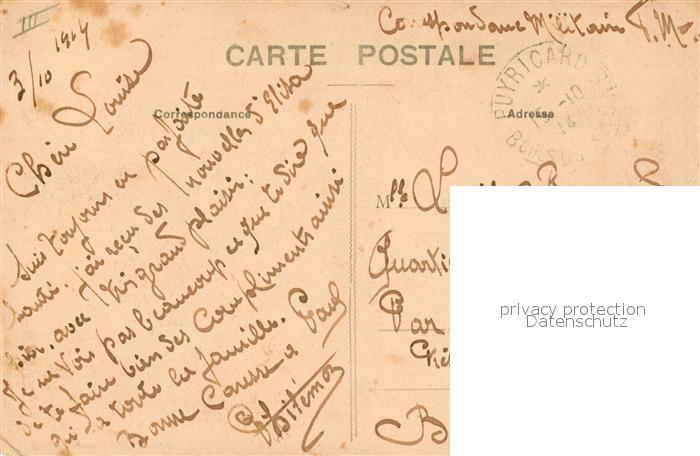 III
3/10 1914
Correspondance Militaire F. M.
CARTE POSTALE
Correspondance
Adresse
PUYRICARD
10
14
Chère Louise
Suis toujours en parfaite
santé. J'ai reçu des nouvelles d'Elisa
hier, avec très grand plaisir.
Je ne vois pas beaucoup ce que te dire que
de te faire bien des compliments ainsi
qu'à toute la famille.
Bonne Caresse
Paul
Mlle
Quarti
Par
B
privacy protection
Datenschutz